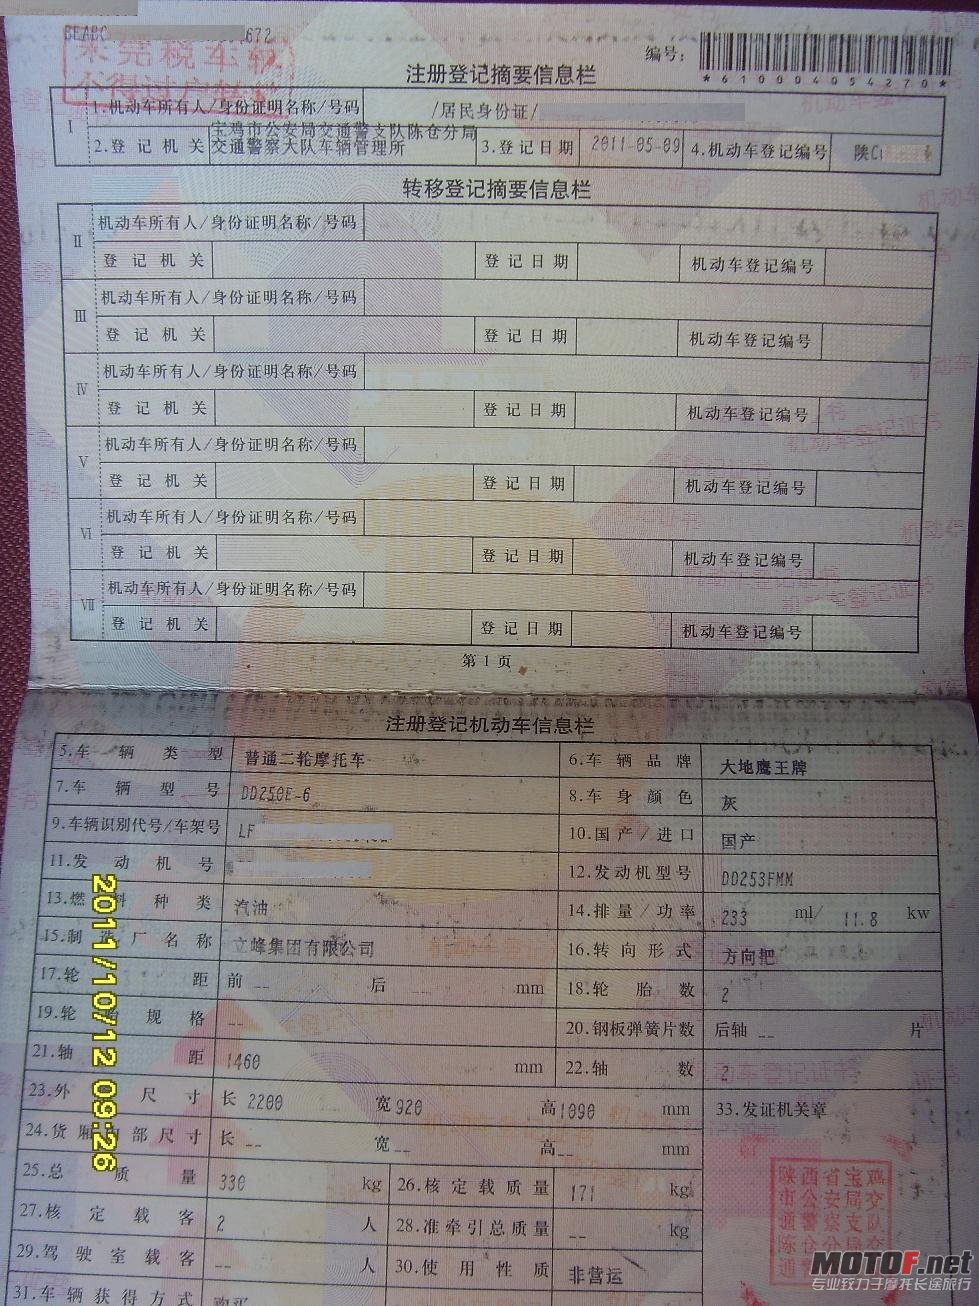 BEABC 672
未完税车辆
不得过户转籍
编号：
*610004054270*
注册登记摘要信息栏
I
1.机动车所有人/身份证明名称/号码 /居民身份证/
2.登记机关 宝鸡市公安局交通警支队陈仓分局
交通警察大队车辆管理所 3.登记日期 2011-05-09 4.机动车登记编号 陕C
转移登记摘要信息栏
II 机动车所有人/身份证明名称/号码
登记机关 登记日期 机动车登记编号
III 机动车所有人/身份证明名称/号码
登记机关 登记日期 机动车登记编号
IV 机动车所有人/身份证明名称/号码
登记机关 登记日期 机动车登记编号
V 机动车所有人/身份证明名称/号码
登记机关 登记日期 机动车登记编号
VI 机动车所有人/身份证明名称/号码
登记机关 登记日期 机动车登记编号
VII 机动车所有人/身份证明名称/号码
登记机关 登记日期 机动车登记编号
第 1 页
注册登记机动车信息栏
5.车辆类型 普通二轮摩托车 6.车辆品牌 大地鹰王牌
7.车辆型号 DD250E-6 8.车身颜色 灰
9.车辆识别代号/车架号 LF 10.国产/进口 国产
11.发动机号 12.发动机型号 DD253FMM
13.燃料种类 汽油 14.排量/功率 233 ml/ 11.8 kw
15.制造厂名称 立峰集团有限公司 16.转向形式 方向把
17.轮距 前 -- 后 -- mm 18.轮胎数 2
19.轮胎规格 -- 20.钢板弹簧片数 后轴 -- 片
21.轴距 1460 mm 22.轴数 2
23.外 尺寸 长 2200 宽 920 高 1090 mm 33.发证机关章
24.货厢内部尺寸 长 -- 宽 -- 高 -- mm
25.总质量 330 kg 26.核定载质量 171 kg
27.核定载客 2 人 28.准牵引总质量 -- kg
29.驾驶室载客 -- 人 30.使用性质 非营运
31.车辆获得方式 购买
陕西省宝鸡
市公安局交
通警察支队
陈仓分局交
2011/10/12 09:26
MOTOF.net
专业致力于摩托长途旅行